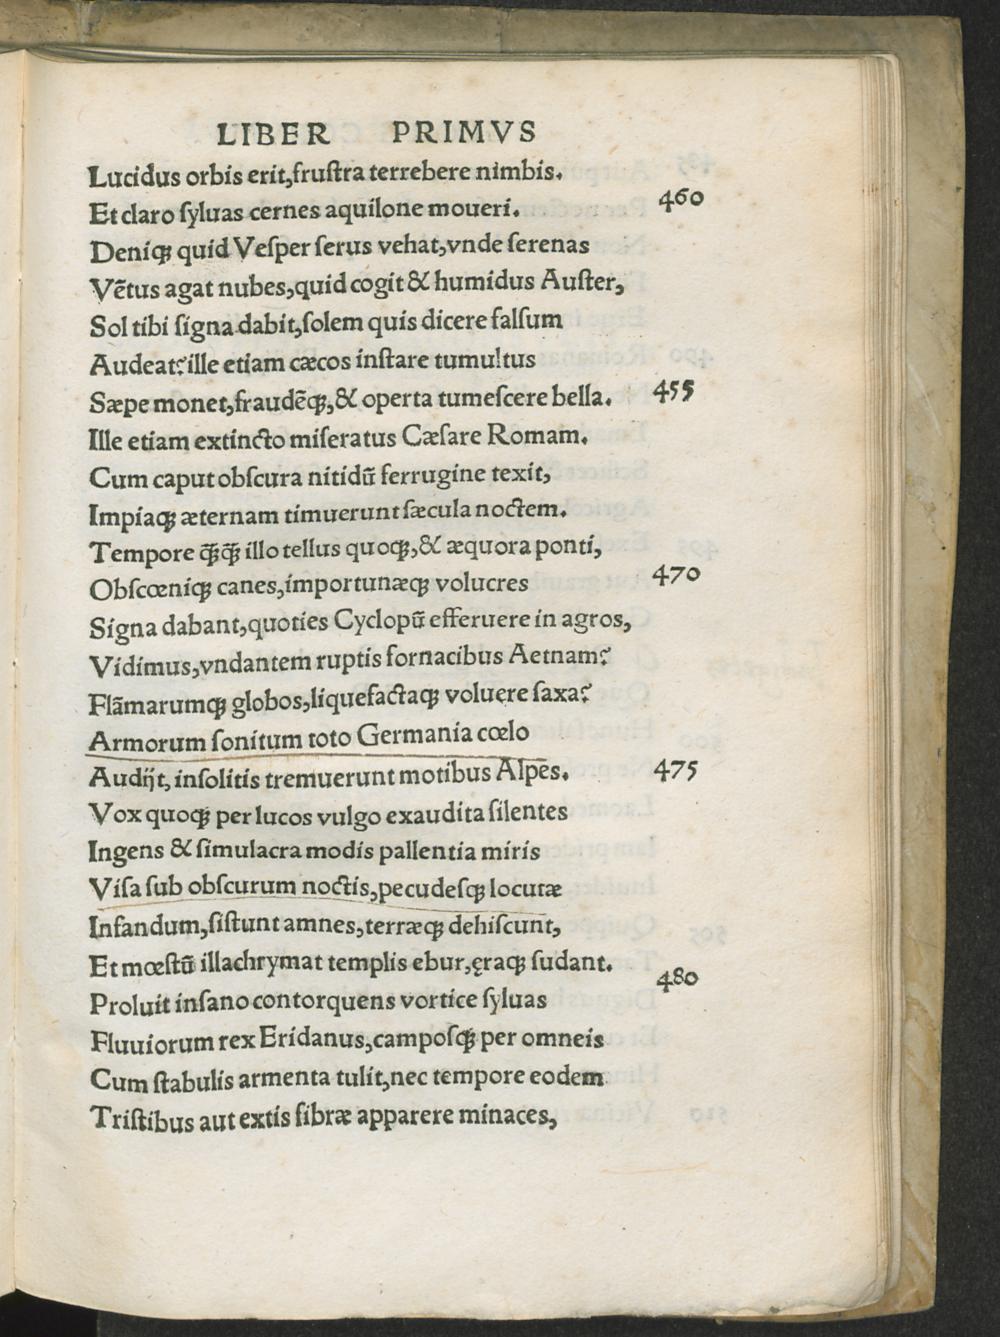 LIBER PRIMVS
Lucidus orbis erit,fruſtra terrebere nimbis.
Et claro ſyluas cernes aquilone moueri. 460
Deniqꝫ quid Veſper ſerus vehat,vnde ſerenas
Vẽtus agat nubes,quid cogit & humidus Auſter,
Sol tibi ſigna dabit,ſolem quis dicere falſum
Audeat?ille etiam cæcos inſtare tumultus
Sæpe monet,fraudẽqꝫ,& operta tumeſcere bella. 455
Ille etiam extincto miſeratus Cæſare Romam.
Cum caput obſcura nitidũ ferrugine texit,
Impiaqꝫ æternam timuerunt ſæcula noctem.
Tempore q̃q̃ illo tellus quoqꝫ,& æquora ponti,
Obſcœniqꝫ canes,importunæqꝫ volucres 470
Signa dabant,quoties Cyclopũ efferuere in agros,
Vidimus,vndantem ruptis fornacibus Aetnam?
Flãmarumqꝫ globos,liquefactaqꝫ voluere ſaxa?
Armorum ſonitum toto Germania cœlo
Audijt, inſolitis tremuerunt motibus Alpes. 475
Vox quoqꝫ per lucos vulgo exaudita ſilentes
Ingens & ſimulacra modis pallentia miris
Viſa ſub obſcurum noctis,pecudeſqꝫ locutæ
Infandum,ſiſtunt amnes,terræqꝫ dehiſcunt,
Et mœſtũ illachrymat templis ebur,ęraqꝫ ſudant. 480
Proluit inſano contorquens vortice ſyluas
Fluuiorum rex Eridanus,campoſqꝫ per omneis
Cum ſtabulis armenta tulit,nec tempore eodem
Triſtibus aut extis ſibræ apparere minaces,